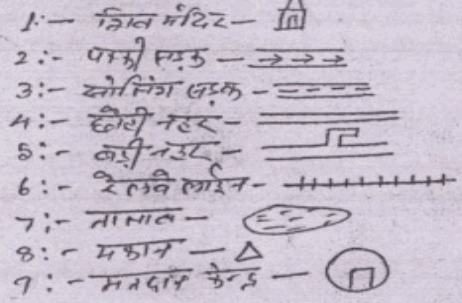 1:- शिव मंदिर-
2:- पक्की सड़क-
3:- सोलिंग सड़क-
4:- छोटी नहर-
5:- बड़ी नहर-
6:- रेलवे लाईन-
7:- तालाब-
8:- मकान-
9:- मतदान केन्द्र-